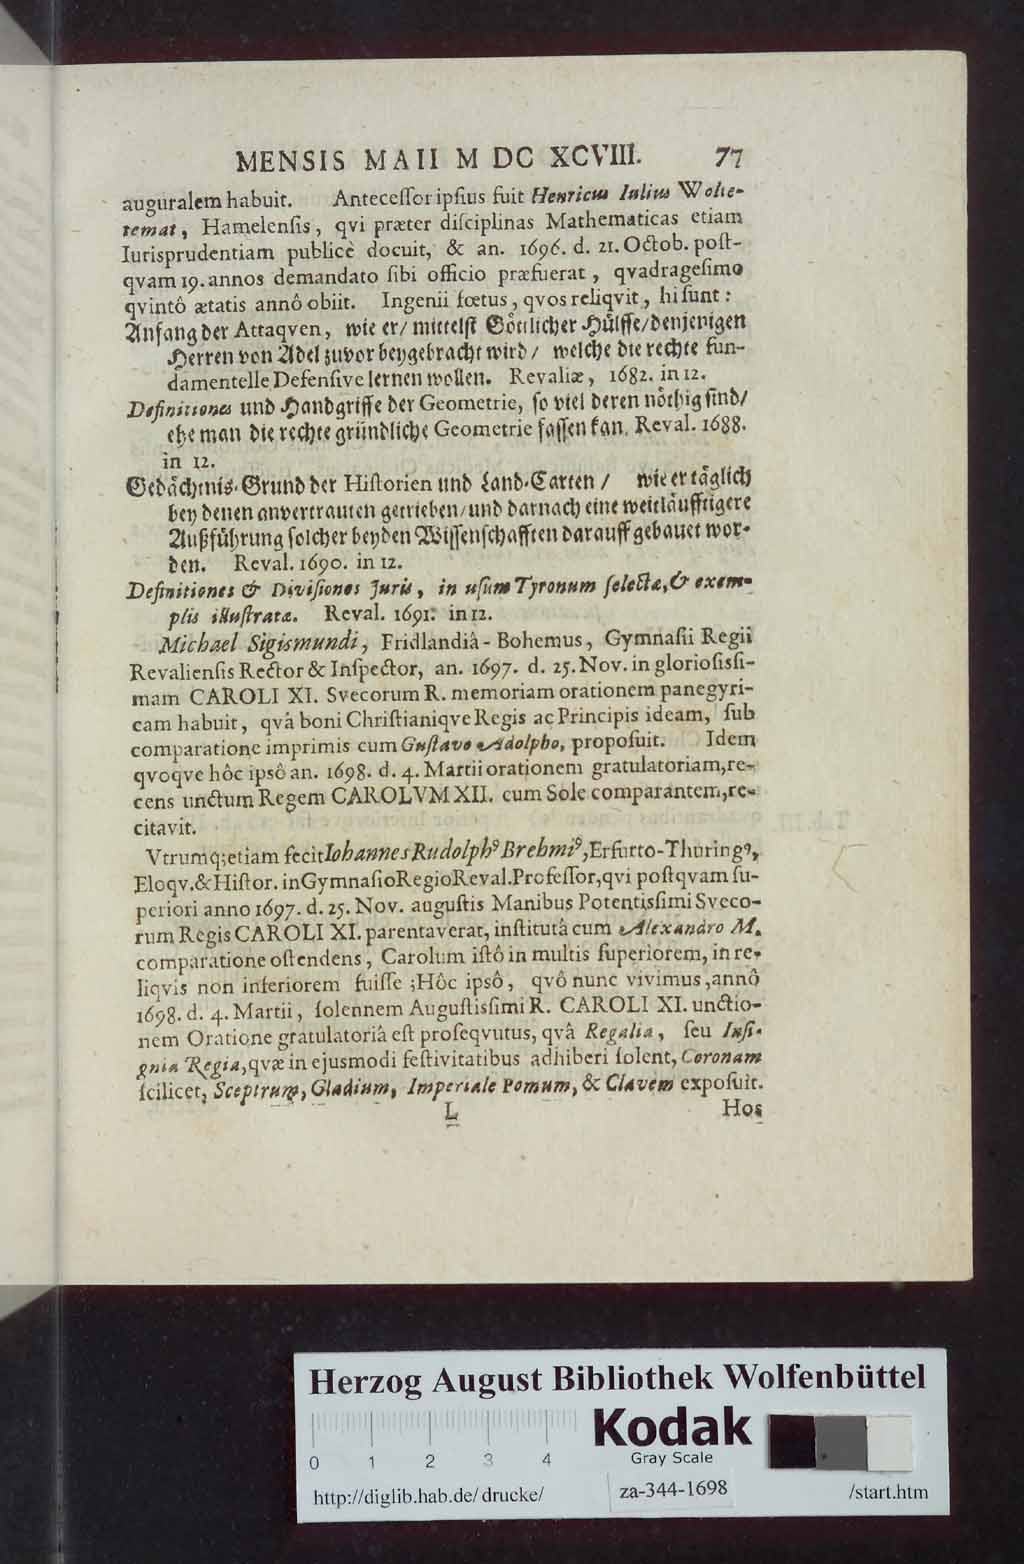 MENSIS MAII M DC XCVIII. 77
auguralem habuit. Anteceſſor ipſius fuit Henricus Iulius Wolte-
temat, Hamelenſis, qvi præter diſciplinas Mathematicas etiam
Iurisprudentiam publicè docuit, & an. 1696. d. 21. Octob. poſt-
qvam 19. annos demandato ſibi officio præfuerat, qvadrageſimo
qvintô ætatis annô obiit. Ingenii fœtus, qvos reliqvit, hi ſunt:
Anfang der Attaqven, wie er/ mittelſt Göttlicher Hülffe/ denjenigen
Herren von Adel zuvor beygebracht wird/ welche die rechte fun-
damentelle Defenſive lernen wollen. Revaliæ, 1682. in 12.
Definitiones und Handgriffe der Geometrie, ſo viel deren nöthig ſind/
ehe man die rechte gründliche Geometrie faſſen kan. Reval. 1688.
in 12.
Gedächtnis-Grund der Hiſtorien und Land-Carten/ wie er täglich
bey denen anvertrauten getrieben/ und darnach eine weitläufftigere
Außführung ſolcher beyden Wiſſenſchafften darauff gebauet wor-
den. Reval. 1690. in 12.
Definitiones & Diviſiones Juris, in uſum Tyronum ſelectæ, & exem-
plis illuſtratæ. Reval. 1691. in 12.
Michael Sigismundi, Fridlandiâ-Bohemus, Gymnaſii Regii
Revalienſis Rector & Inſpector, an. 1697. d. 25. Nov. in glorioſisſi-
mam CAROLI XI. Svecorum R. memoriam orationem panegyri-
cam habuit, qvâ boni Chriſtianiqve Regis ac Principis ideam, ſub
comparatione imprimis cum Guſtavo Adolpho, propoſuit. Idem
qvoqve hôc ipsô an. 1698. d. 4. Martii orationem gratulatoriam, re-
cens unctum Regem CAROLVM XII. cum Sole comparantem, re-
citavit.
Vtrumq; etiam fecit Iohannes Rudolphꝰ Brehmiꝰ, Erfurto-Thuringꝰ,
Eloqv. & Hiſtor. in Gymnaſio Regio Reval. Profeſſor, qvi poſtqvam ſu-
periori anno 1697. d. 25. Nov. auguſtis Manibus Potentisſimi Sveco-
rum Regis CAROLI XI. parentaverat, inſtitutâ cum Alexandro M.
comparatione oſtendens, Carolum iſtô in multis ſuperiorem, in re-
liqvis non inferiorem fuiſſe; Hôc ipsô, qvô nunc vivimus, annô
1698. d. 4. Martii, ſolennem Auguſtisſimi R. CAROLI XI. unctio-
nem Oratione gratulatoriâ eſt proſeqvutus, qvâ Regalia, ſeu Inſi-
gnia Regia, qvæ in ejusmodi feſtivitatibus adhiberi ſolent, Coronam
ſcilicet, Sceptrum, Gladium, Imperiale Pomum, & Clavem expoſuit.
L Hos
Herzog August Bibliothek Wolfenbüttel
Kodak
Gray Scale
0 1 2 3 4
http://diglib.hab.de/drucke/ za-344-1698 /start.htm